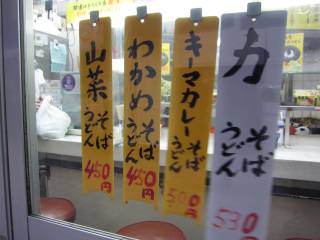 山菜そばうどん
450円
わかめそばうどん
450円
キーマカレーそばうどん
500円
力そばうどん
530